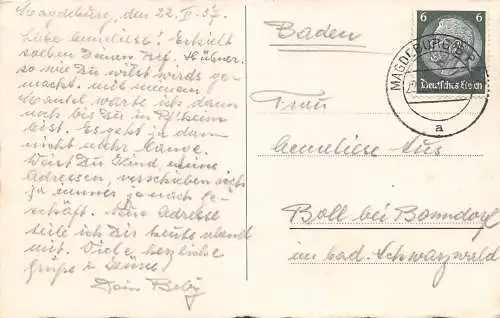 Magdeburg, den 22. II. 37.
Liebe Anneliese! Erhielt
soeben Deinen Brief.
so wie Du willst wirds ge-
macht. mit meinem
Mantel warte ich dann
noch bis Du in
bist. Es geht ja dann
nicht mehr lange.
Weist Du Kind, meine
Adressen, verschieben sich
ja immer je nach Ge-
schäft. Neue Adresse
teile ich Dir heute abend
mit. Viele herzliche
Grüße u. Küsse
Dein Beby
Baden
Frau
Anneliese Aus
Boll bei Bonndorf
im bad. Schwarzwald
6 6
Deutsches Reich
MAGDEBURG
a